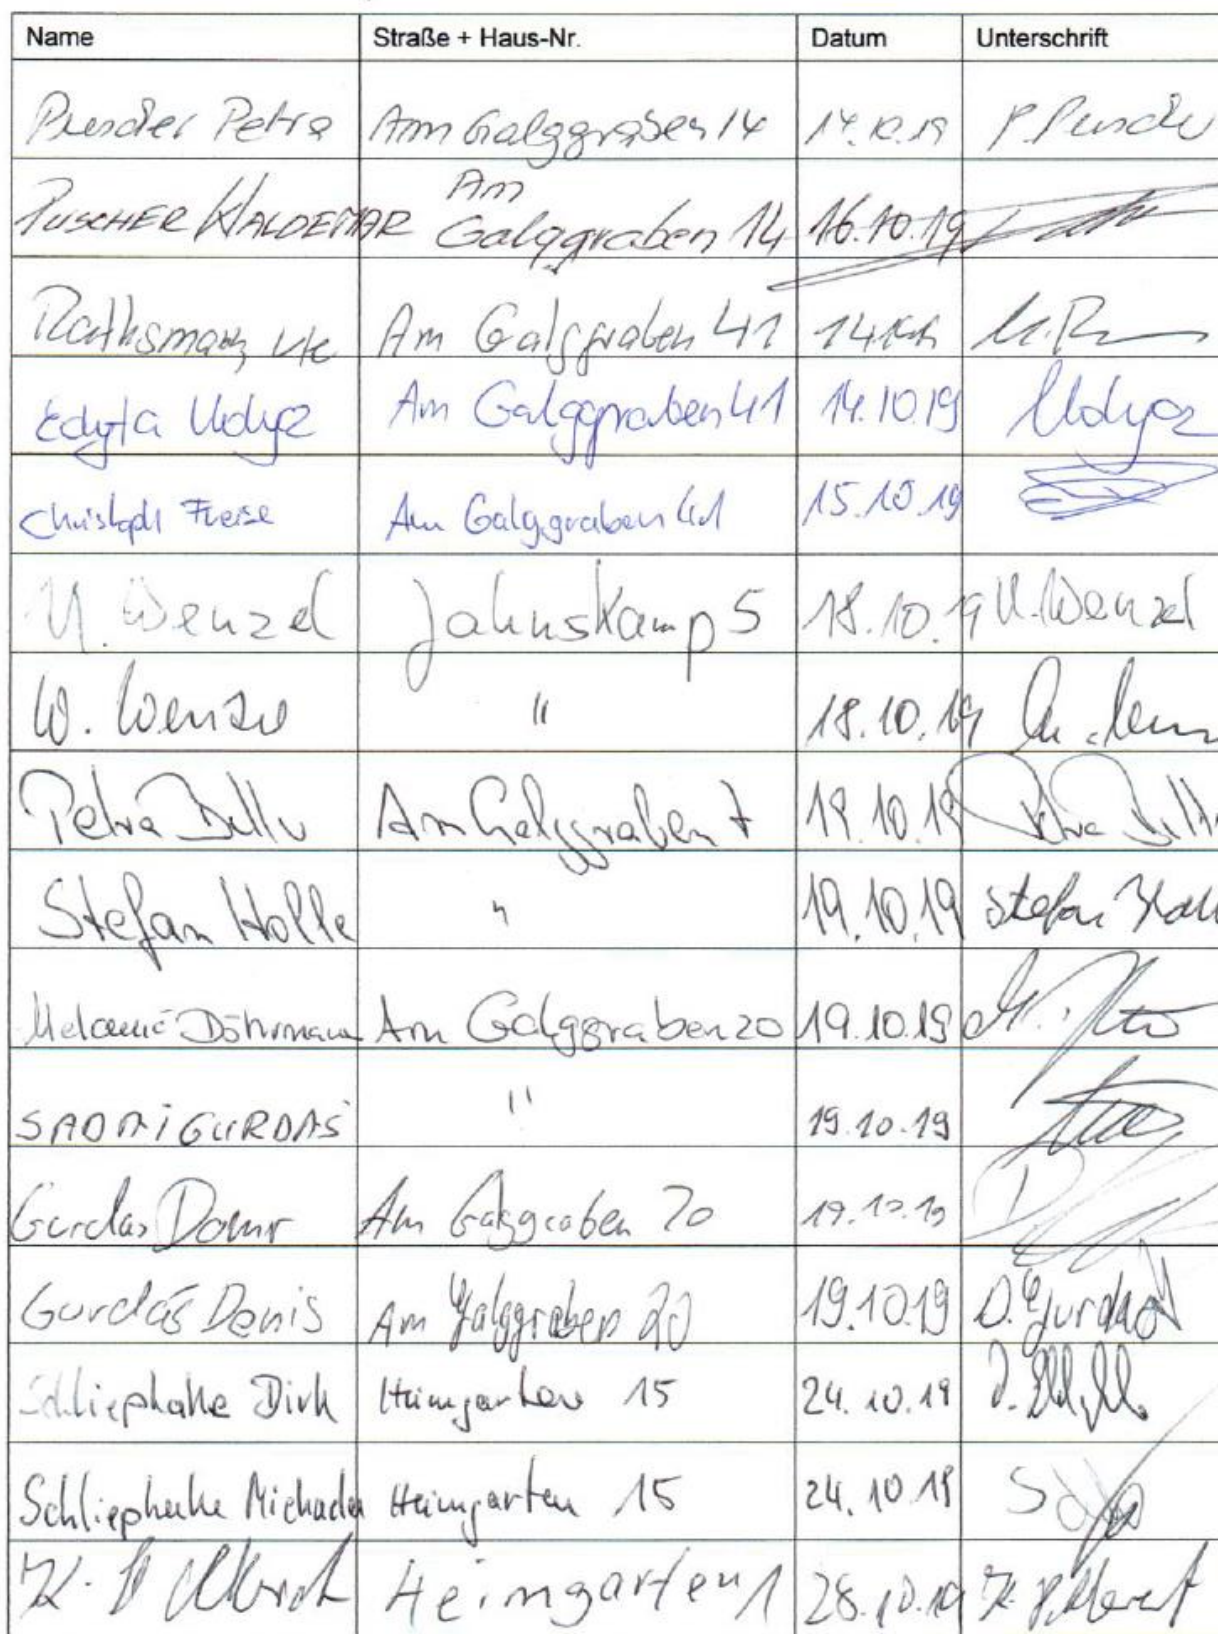 Name Straße + Haus-Nr. Datum Unterschrift
Petra Am Galggraben 14 14.10.19
PUSCHER WALDEMAR Am Galggraben 14 16.10.19
Rathsmann Am Galggraben 41
Edyta Udycz Am Galggraben 41 14.10.19 Udycz
Christoph Freise Am Galggraben 41 15.10.19
U. Wenzel Jahnskamp 5 18.10.19 U. Wenzel
W. Wenzel " 18.10.19
Petra Am Galggraben 7 19.10.19 Petra
Stefan Holle " 19.10.19 Stefan Holle
Melanie Döhrmann Am Galggraben 20 19.10.19
SADMI GURDAS " 19.10.19
Gurdas Am Galggraben 20 19.10.19
Gurdas Denis Am Galggraben 20 19.10.19 D. Gurdas
Schliephake Dirk Heimgarten 15 24.10.19
Schliephake Michaela Heimgarten 15 24.10.19
K. Heimgarten 1 28.10.19